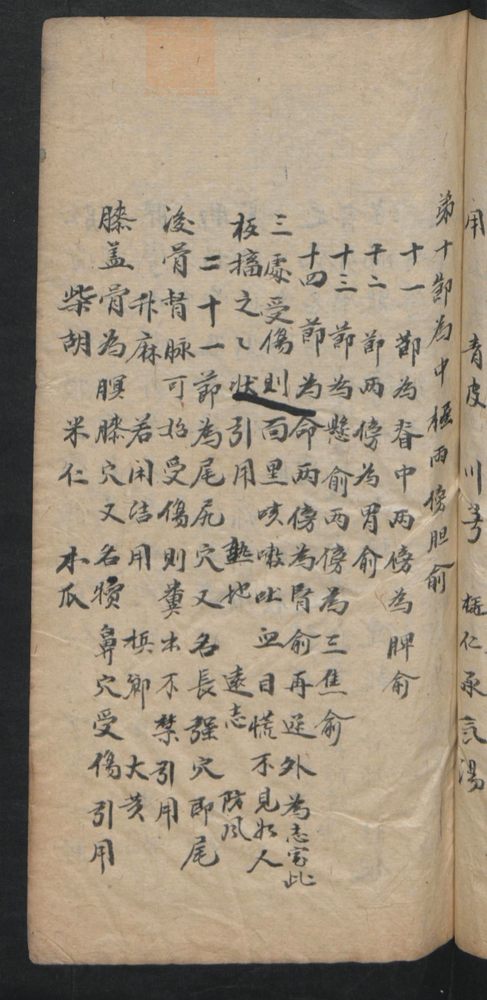 用 青皮 川芎 桃仁承气湯
第十節為中樞两傍胆俞
十一節為脊中两傍為脾俞
十二節两傍為胃俞
十三節為懸俞两傍為三焦俞
十四節為命两傍為腎俞再近外為志室此
三處受傷則面黑咳嗽吐血目慌不見如人
板搞之之状引用 熟地 遠志 防风
二十一節為尾尻穴又名長强穴即尾
後骨督脉可治受傷則糞水不禁引用
升麻 若闭结用 梹郎 大黄
膝盖骨為膝穴又名犢鼻穴受傷引用
柴胡 米仁 木瓜